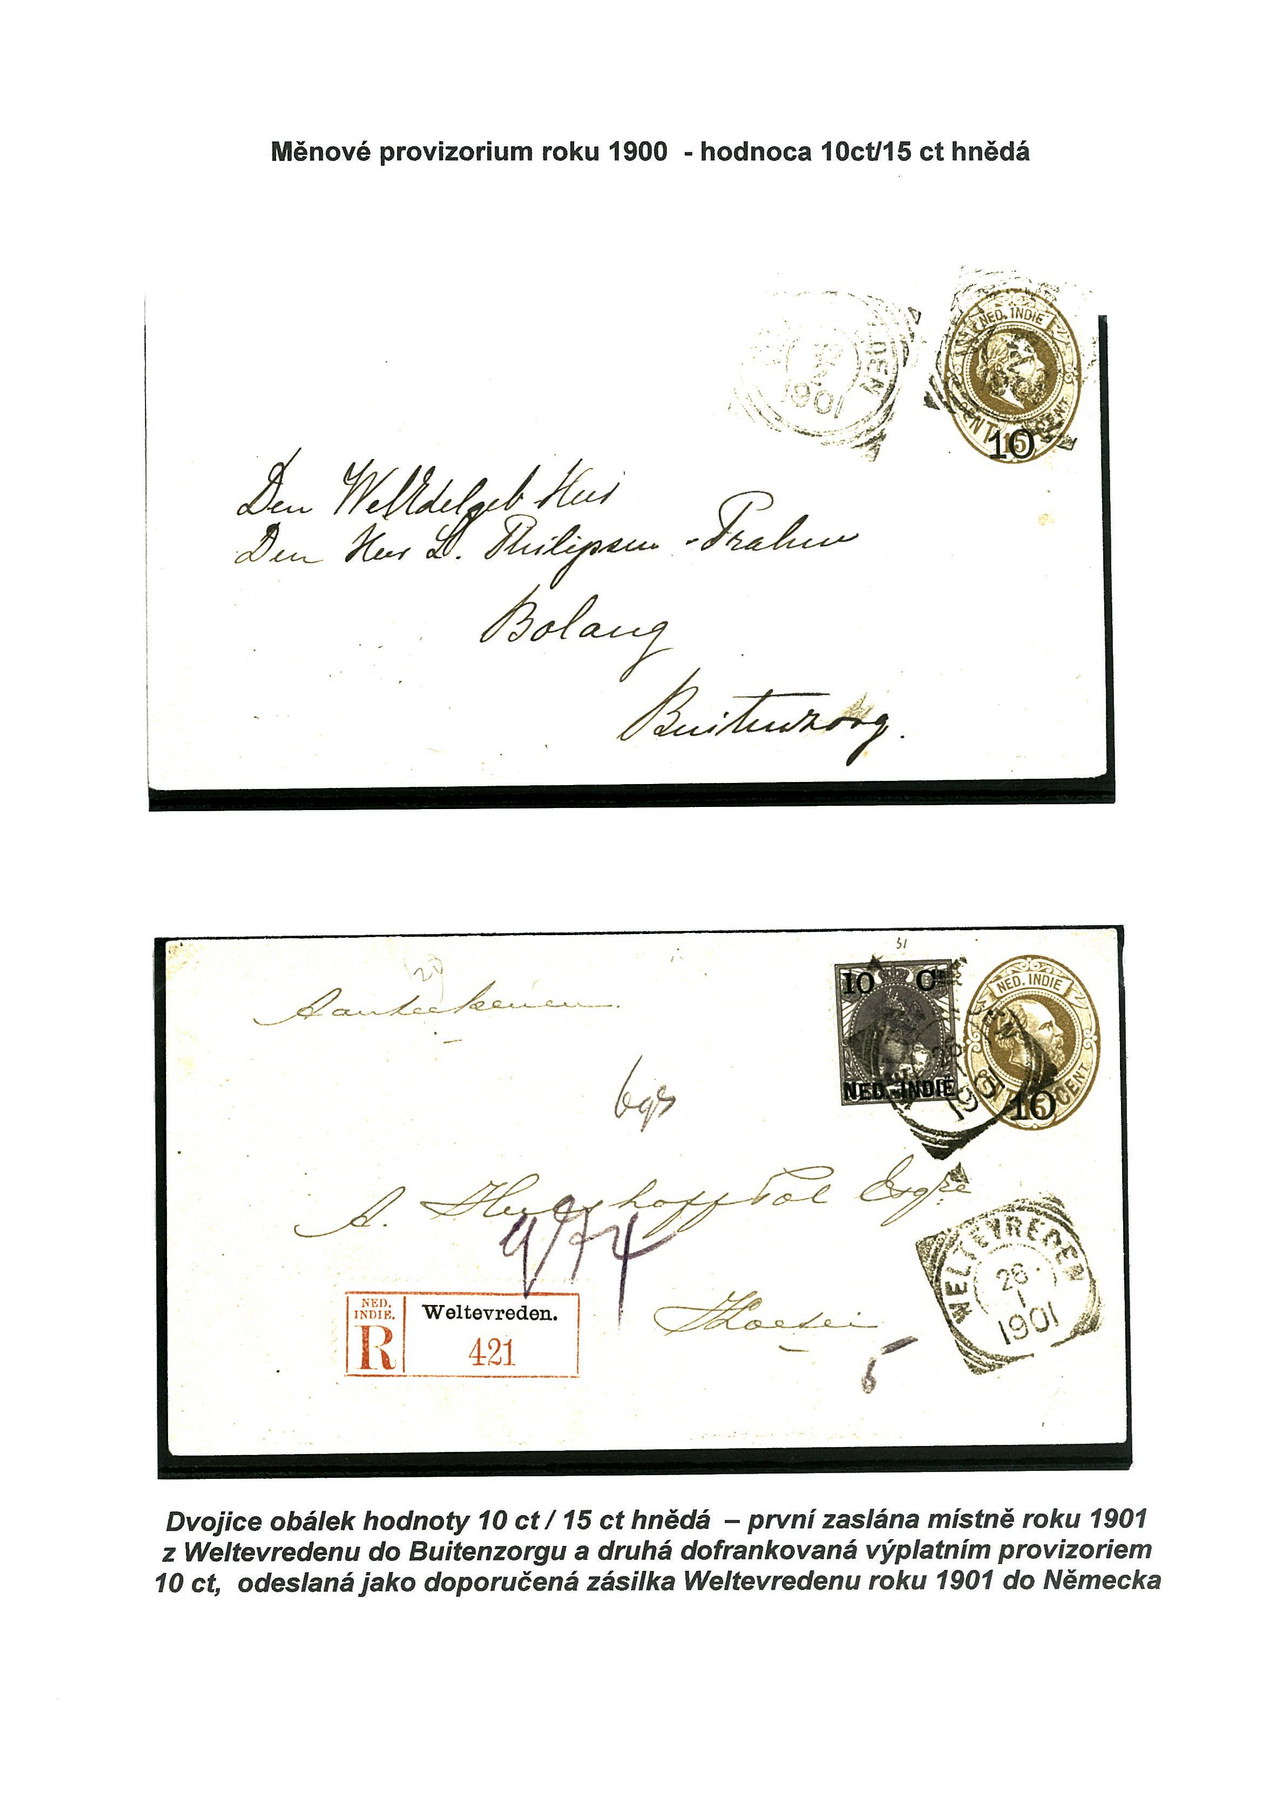 Měnové provizorium roku 1900 - hodnoca 10ct/15 ct hnědá
1901
NED. INDIE
CENT
10
Den WelEdelgeb Heer
Den Heer L. Philipsen - Prahm
Bolang
Buitenzorg.
31
10 Ct.
NED. INDIE
NED. INDIE
CENT
10
28
1901
Aanteekenen
A. Pol Esqre
WELTEVREDEN
28
1
1901
NED.
INDIE.
R
Weltevreden.
421
5
Dvojice obálek hodnoty 10 ct / 15 ct hnědá – první zaslána místně roku 1901
z Weltevredenu do Buitenzorgu a druhá dofrankovaná výplatním provizoriem
10 ct, odeslaná jako doporučená zásilka Weltevredenu roku 1901 do Německa